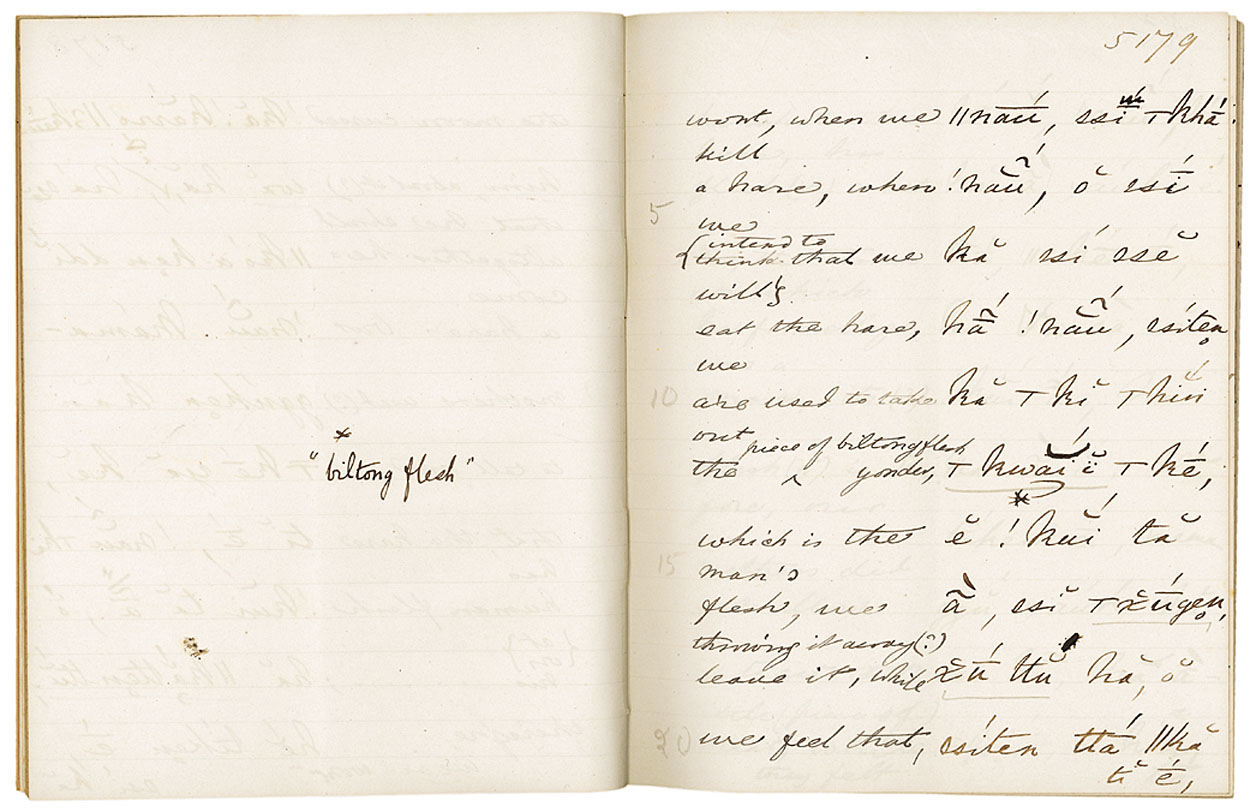 ×
"biltong flesh"
5179
wont, when we ǁnāú, ssí ⊤khā́
kill
a hare, when !nā̆ṹ, ŏ ssí
5
we
intend to
{think that we kă ssí ssĕ
will
eat the hare, hā̃́ !nā̆ṹ, ssíten̥
we
10
are used to take kă ⊤kĭ ⊤hĭń
out piece of biltong flesh
the ‸ yonder, ⊤kwaíĭ ⊤ké,
×
which is the ĕ !kúĭ tă
15
man's
flesh, we ā̃, ssĭ ⊤x̆úgen̥
throwing it away(?)
leave it, while x̆ú ttŭ hă, ŏ
20
we feel that, ssíten ttá ǁkă
tĭ é,